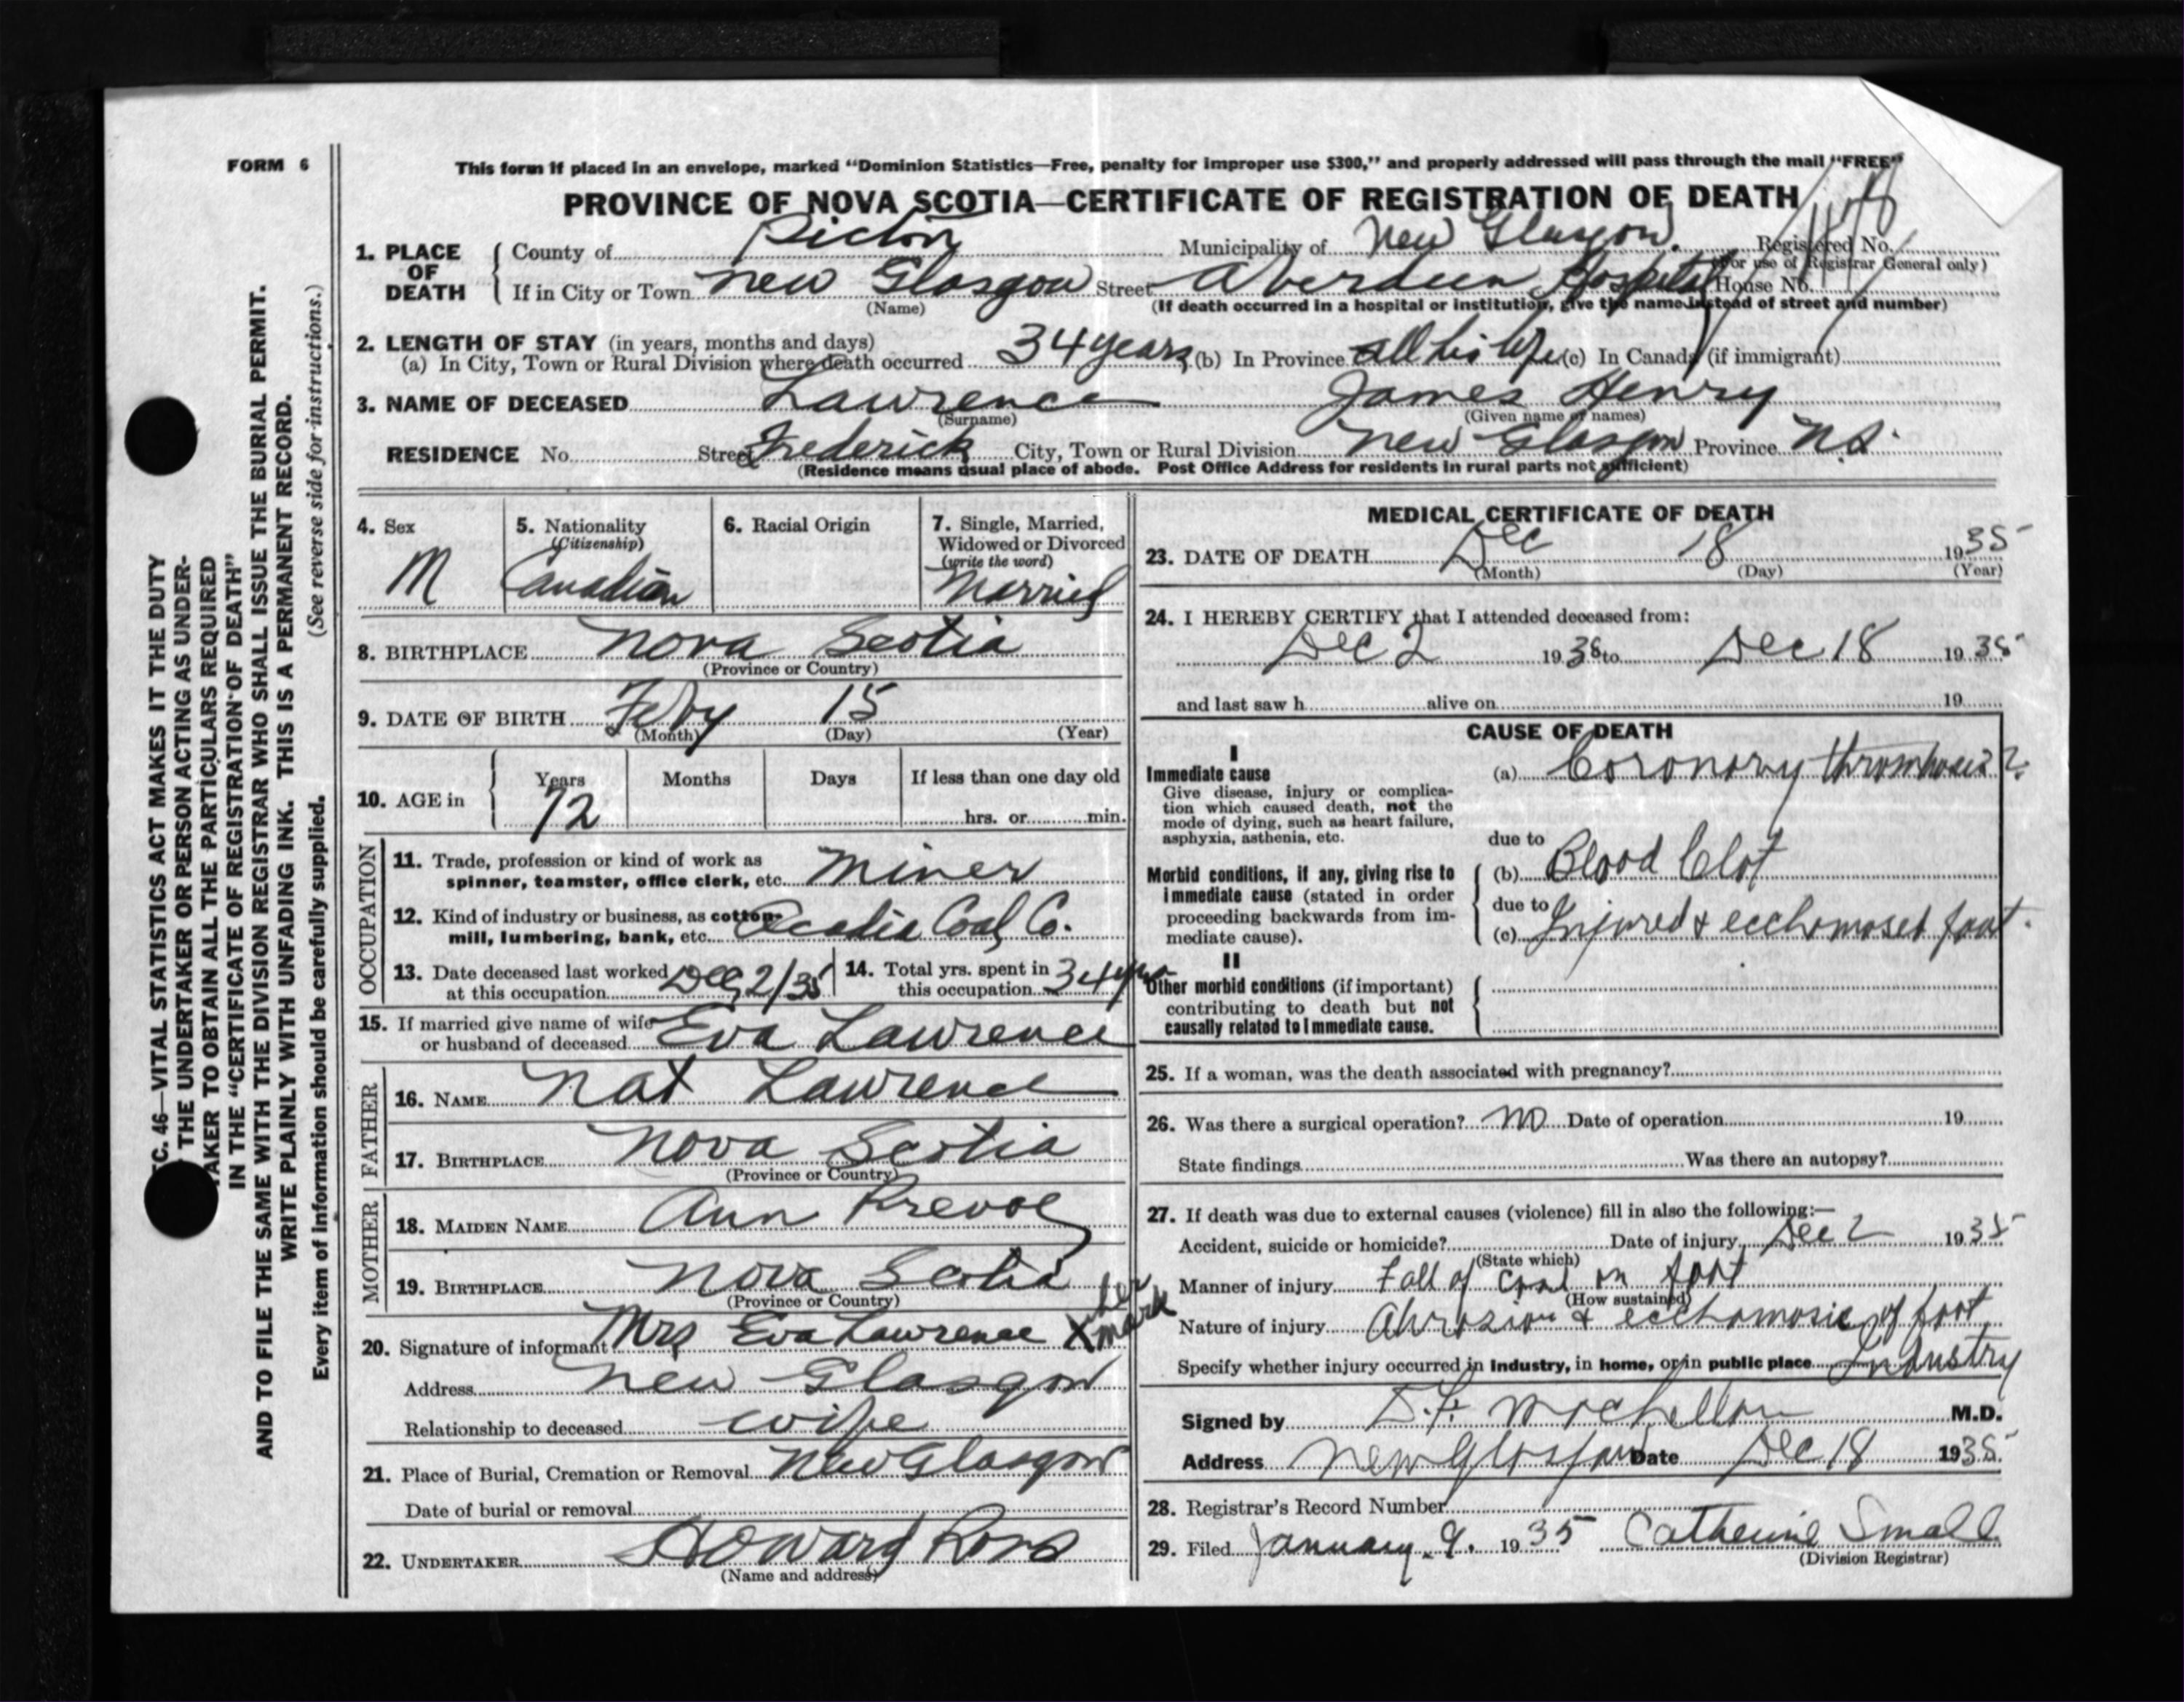 FORM 6
This form if placed in an envelope, marked "Dominion Statistics—Free, penalty for improper use $300," and properly addressed will pass through the mail "FREE"
PROVINCE OF NOVA SCOTIA—CERTIFICATE OF REGISTRATION OF DEATH
1. PLACE OF DEATH
County of Pictou Municipality of New Glasgow. Registered No.
(For use of Registrar General only)
If in City or Town New Glasgow Street Aberdeen Hospital House No.
(Name) (If death occurred in a hospital or institution, give the name instead of street and number)
2. LENGTH OF STAY (in years, months and days)
(a) In City, Town or Rural Division where death occurred 34 years (b) In Province all his life (c) In Canada (if immigrant)
3. NAME OF DECEASED Lawrence James Henry
(Surname) (Given name or names)
RESIDENCE No. Street Frederick City, Town or Rural Division New Glasgow Province N.S.
(Residence means usual place of abode. Post Office Address for residents in rural parts not sufficient)
C. 46—VITAL STATISTICS ACT MAKES IT THE DUTY
THE UNDERTAKER OR PERSON ACTING AS UNDER-
TAKER TO OBTAIN ALL THE PARTICULARS REQUIRED
IN THE "CERTIFICATE OF REGISTRATION OF DEATH"
AND TO FILE THE SAME WITH THE DIVISION REGISTRAR WHO SHALL ISSUE THE BURIAL PERMIT.
WRITE PLAINLY WITH UNFADING INK. THIS IS A PERMANENT RECORD.
Every item of information should be carefully supplied. (See reverse side for instructions.)
4. Sex M
5. Nationality (Citizenship) Canadian
6. Racial Origin
7. Single, Married, Widowed or Divorced (write the word) Married
8. BIRTHPLACE Nova Scotia
(Province or Country)
9. DATE OF BIRTH Feby 15
(Month) (Day) (Year)
10. AGE in Years Months Days If less than one day old
72 hrs. or min.
OCCUPATION
11. Trade, profession or kind of work as
spinner, teamster, office clerk, etc. Miner
12. Kind of industry or business, as cotton-
mill, lumbering, bank, etc. Acadia Coal Co.
13. Date deceased last worked
at this occupation Dec 2/35
14. Total yrs. spent in
this occupation 34 yrs
15. If married give name of wife
or husband of deceased Eva Lawrence
FATHER
16. NAME Nat Lawrence
17. BIRTHPLACE Nova Scotia
(Province or Country)
MOTHER
18. MAIDEN NAME Ann Prevoe
19. BIRTHPLACE Nova Scotia
(Province or Country)
20. Signature of informant Mrs Eva Lawrence X her mark
Address New Glasgow
Relationship to deceased wife
21. Place of Burial, Cremation or Removal New Glasgow
Date of burial or removal
22. UNDERTAKER Howard Ross
(Name and address)
MEDICAL CERTIFICATE OF DEATH
23. DATE OF DEATH Dec 18 1935
(Month) (Day) (Year)
24. I HEREBY CERTIFY that I attended deceased from:
Dec 2 1935 to Dec 18 1935
and last saw h alive on 19
CAUSE OF DEATH
I
Immediate cause
Give disease, injury or complica-
tion which caused death, not the
mode of dying, such as heart failure,
asphyxia, asthenia, etc.
(a) Coronary thrombosis?
due to
Morbid conditions, if any, giving rise to
immediate cause (stated in order
proceeding backwards from im-
mediate cause).
(b) Blood Clot
due to
(c) Injured & ecchomosed foot.
II
Other morbid conditions (if important)
contributing to death but not
causally related to immediate cause.
25. If a woman, was the death associated with pregnancy?
26. Was there a surgical operation? No Date of operation 19
State findings Was there an autopsy?
27. If death was due to external causes (violence) fill in also the following:—
Accident, suicide or homicide? Date of injury Dec 2 1935
(State which)
Manner of injury Fall of coal on foot
(How sustained)
Nature of injury Abrasion & ecchomosis of foot
Specify whether injury occurred in industry, in home, or in public place Industry
Signed by M.D.
Address New Glasgow Date Dec 18 1935
28. Registrar's Record Number
29. Filed January 9. 1935 Catherine Small
(Division Registrar)